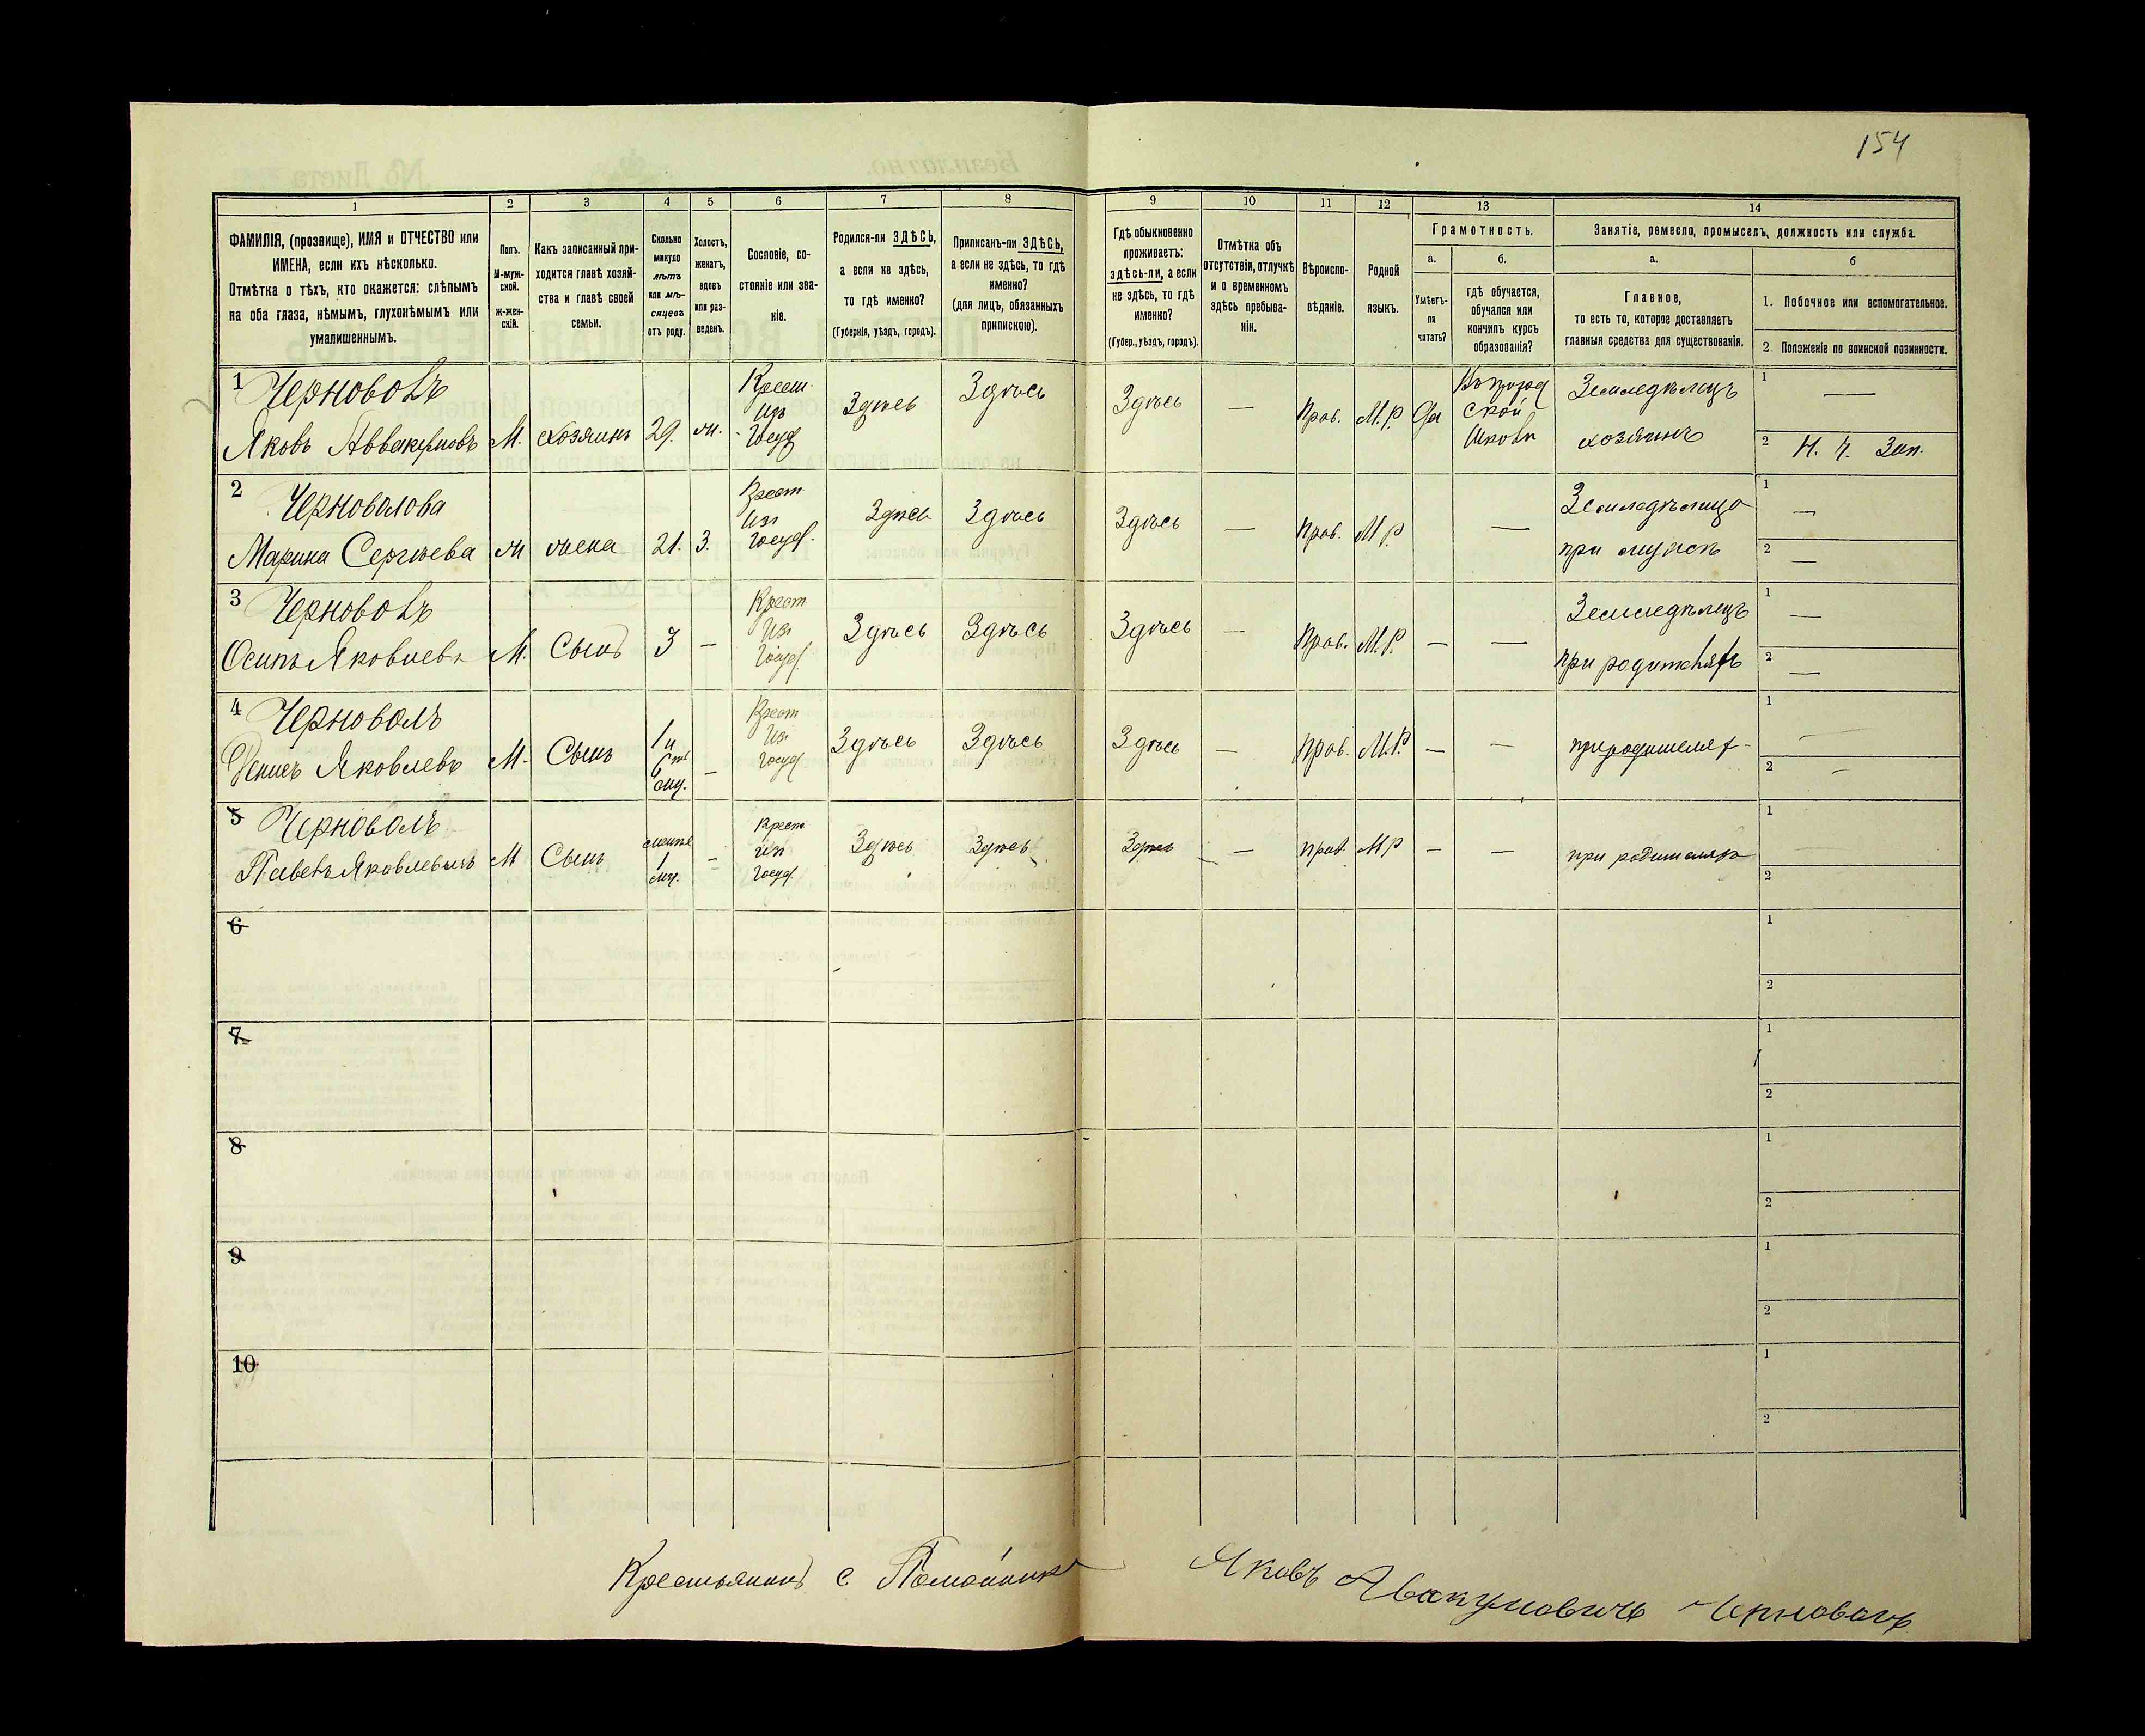 154
1
2
3
4
5
6
7
8
9
10
11
12
13
14
ФАМИЛІЯ, (прозвище), ИМЯ и ОТЧЕСТВО или
ИМЕНА, если ихъ нѣсколько.
Отмѣтка о тѣхъ, кто окажется: слѣпымъ
на оба глаза, нѣмымъ, глухонѣмымъ или
умалишеннымъ.
Полъ.
М-муж-
ской.
Ж-жен-
скій.
Какъ записанный при-
ходится главѣ хозяй-
ства и главѣ своей
семьи.
Сколько
минуло
лѣтъ
или мѣ-
сяцевъ
отъ роду.
Холостъ,
женатъ,
вдовъ
или раз-
веденъ.
Сословіе, со-
стояніе или зва-
ніе.
Родился-ли ЗДѢСЬ,
а если не здѣсь,
то гдѣ именно?
(Губернія, уѣздъ, городъ).
Приписанъ-ли ЗДѢСЬ,
а если не здѣсь, то гдѣ
именно?
(для лицъ, обязанныхъ
припискою).
Гдѣ обыкновенно
проживаетъ:
здѣсь-ли, а если
не здѣсь, то гдѣ
именно?
(Губер., уѣздъ, городъ).
Отмѣтка объ
отсутствіи, отлучкѣ
и о временномъ
здѣсь пребыва-
ніи.
Вѣроиспо-
вѣданіе.
Родной
языкъ.
Грамотность.
а.
Умѣетъ-
ли
читать?
б.
гдѣ обучается,
обучался или
кончилъ курсъ
образованія?
Занятіе, ремесло, промыселъ, должность или служба.
а.
Главное,
то есть то, которое доставляетъ
главныя средства для существованія.
б
1. Побочное или вспомогательное.
2. Положеніе по воинской повинности.
1 Черноволъ
Яковъ Аввакумовъ
М.
хозяинъ
29.
ж.
Крест.
изъ
Госуд
Здѣсь
Здѣсь
Здѣсь
—
Прав.
М.Р.
Да
ской
Школѣ
Земледѣлецъ
хозяинъ
1 —
2 Н. Ч. Зап.
2 Черноволова
Марина Сергѣева
ж
жена
21.
З.
Крест.
изъ
Госуд.
Здѣсь
Здѣсь
Здѣсь
—
Прав.
М.Р.
—
Земледѣлица
при мужѣ
1 —
2 —
3 Черноволъ
Осипъ Яковлевъ
М.
Сынъ
3
—
Крест
изъ
Госуд.
Здѣсь
Здѣсь
Здѣсь
—
Прав.
М.Р.
—
—
Земледѣлецъ
при родителяхъ
1 —
2 —
4 Черноволъ
Денисъ Яковлевъ
М.
Сынъ
1 и
6
мц.
—
Крест
изъ
Госуд.
Здѣсь
Здѣсь
Здѣсь
—
Прав.
М.Р.
—
—
при родителях-
1 —
2 —
5 Черноволъ
Павелъ Яковлевичъ
М
Сынъ
менѣе
1
мц.
—
Крест
изъ
Госуд.
Здѣсь
Здѣсь
Здѣсь
—
Прав.
М Р
—
—
при родителяхъ
1
2
6
1
2
7
1
2
8
1
2
9
1
2
10
1
2
Крестьянинъ с.
Яковъ Авакумовичъ Черноволъ